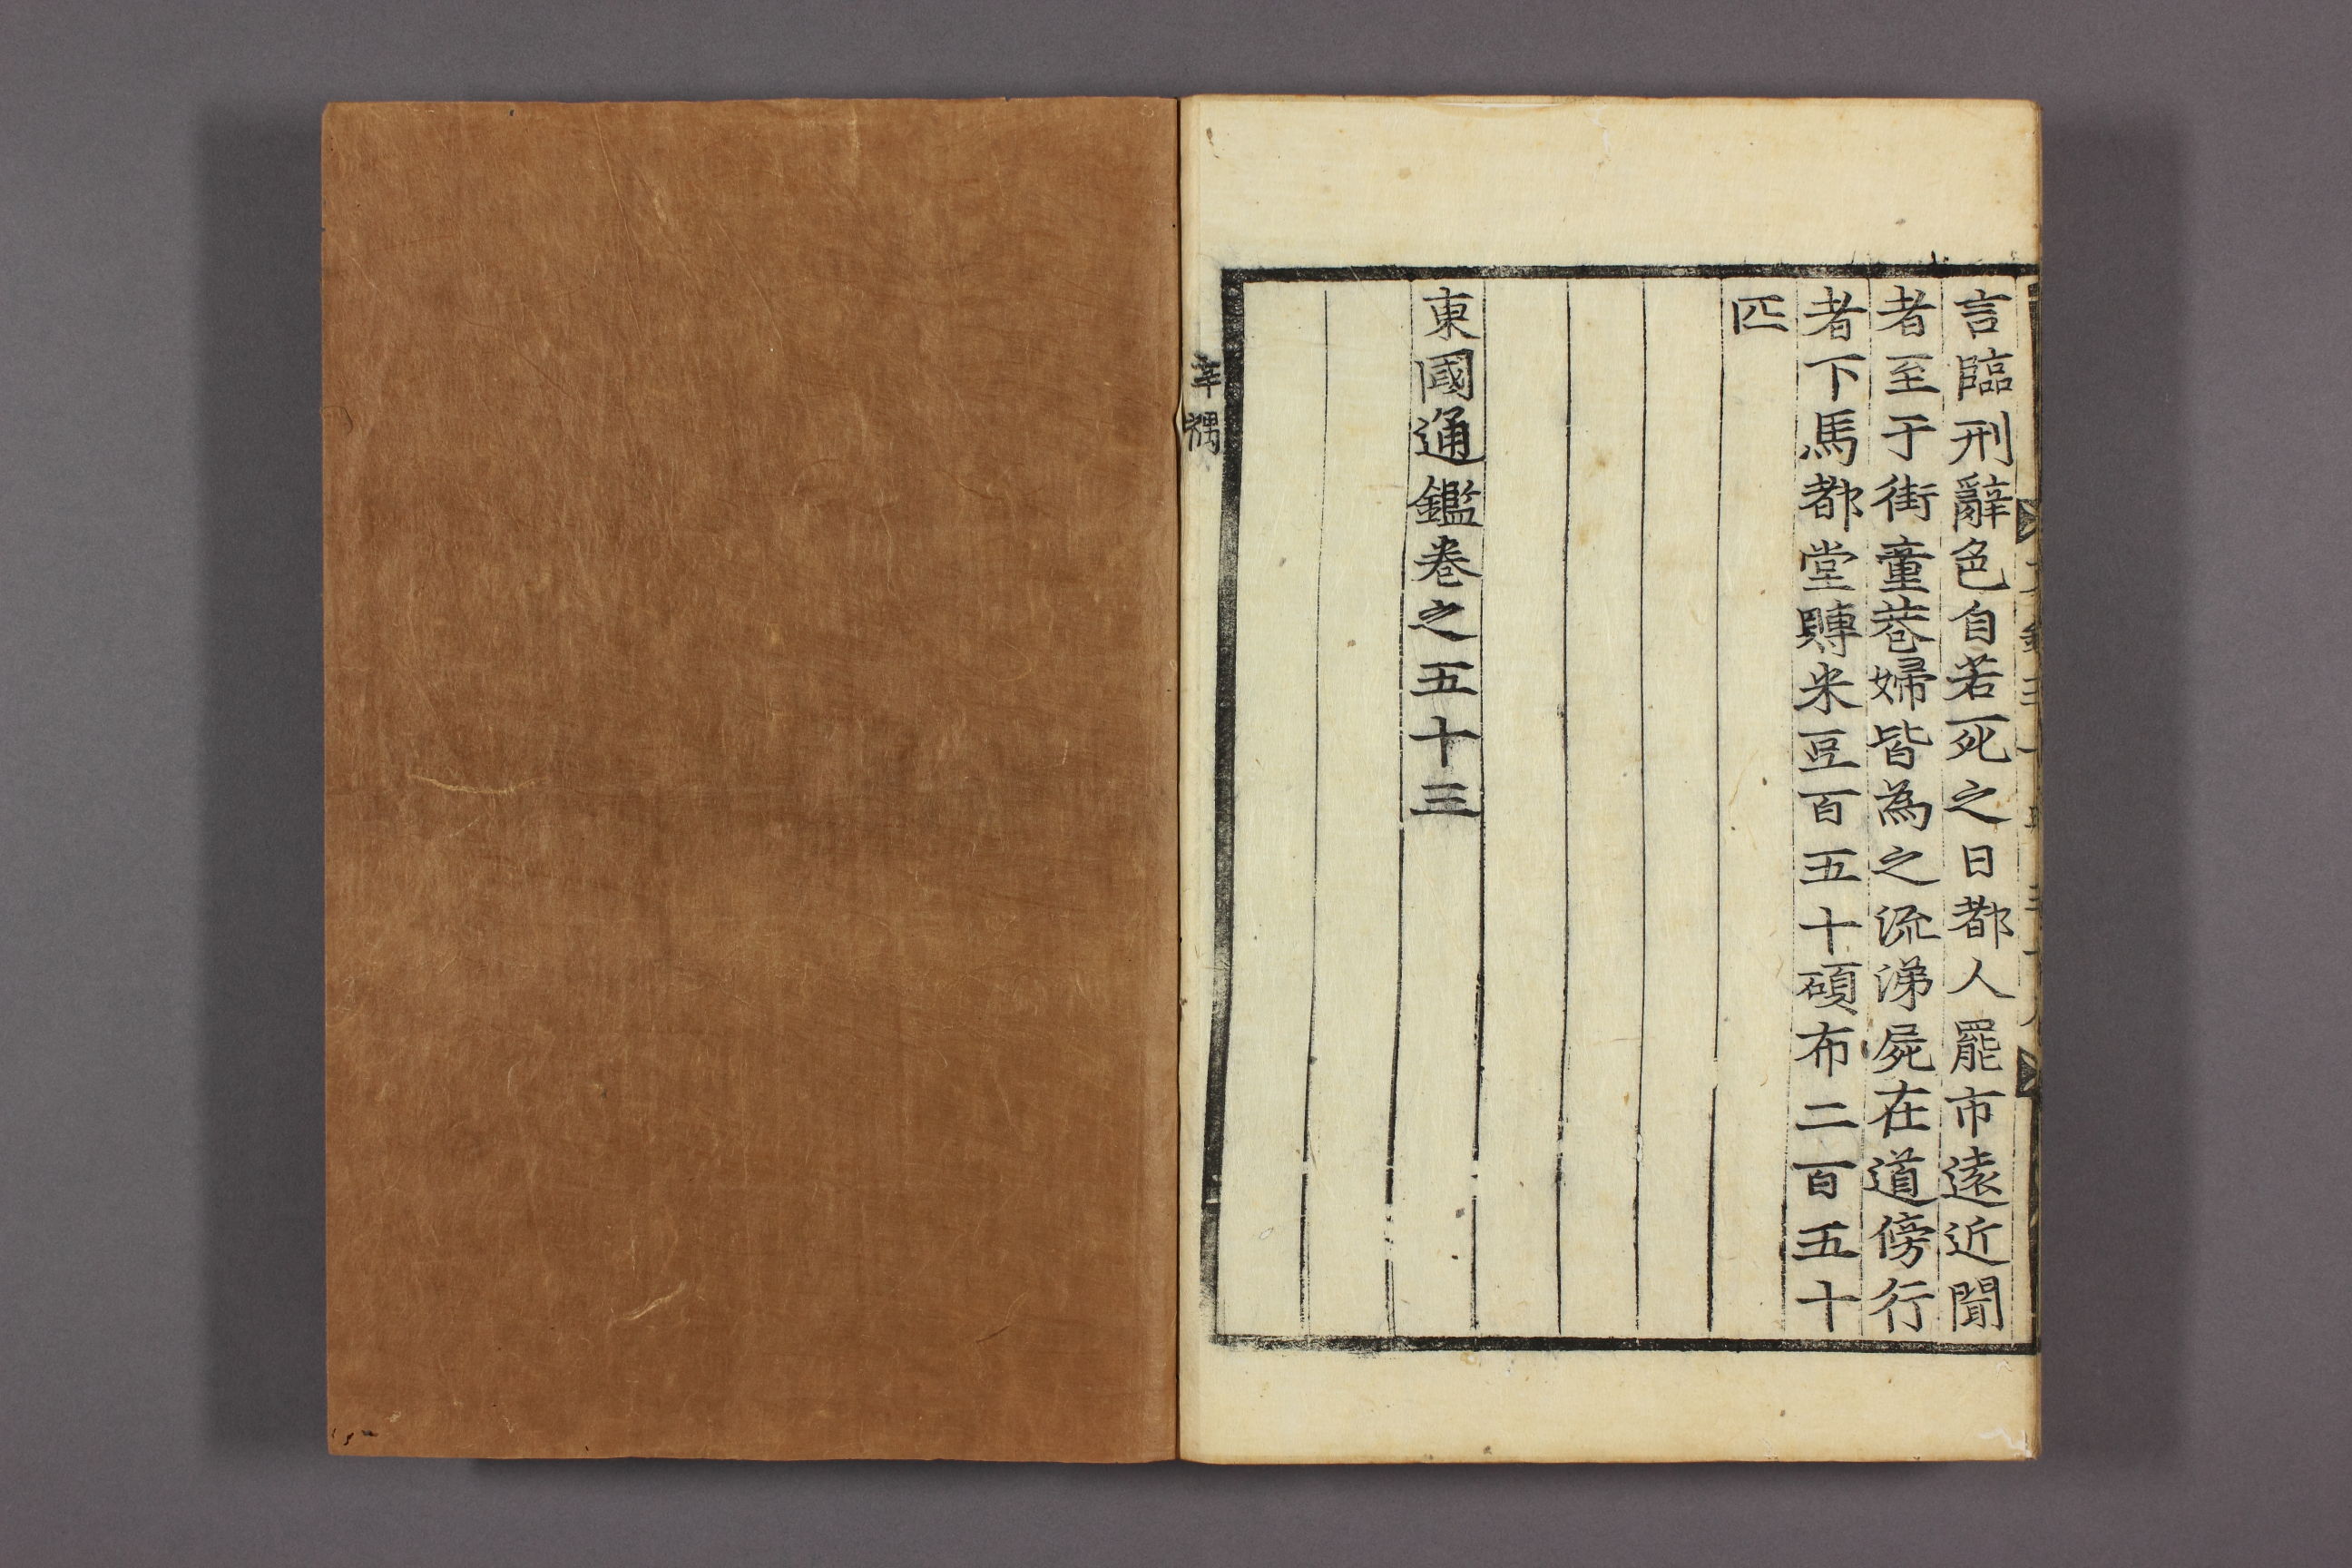 言臨刑辭色自若死之日都人罷市遠近聞
者至于街童巷婦皆為之流涕屍在道傍行
者下馬都堂賻米豆百五十碩布二百五十
匹
東國通鑑卷之五十三
辛禑